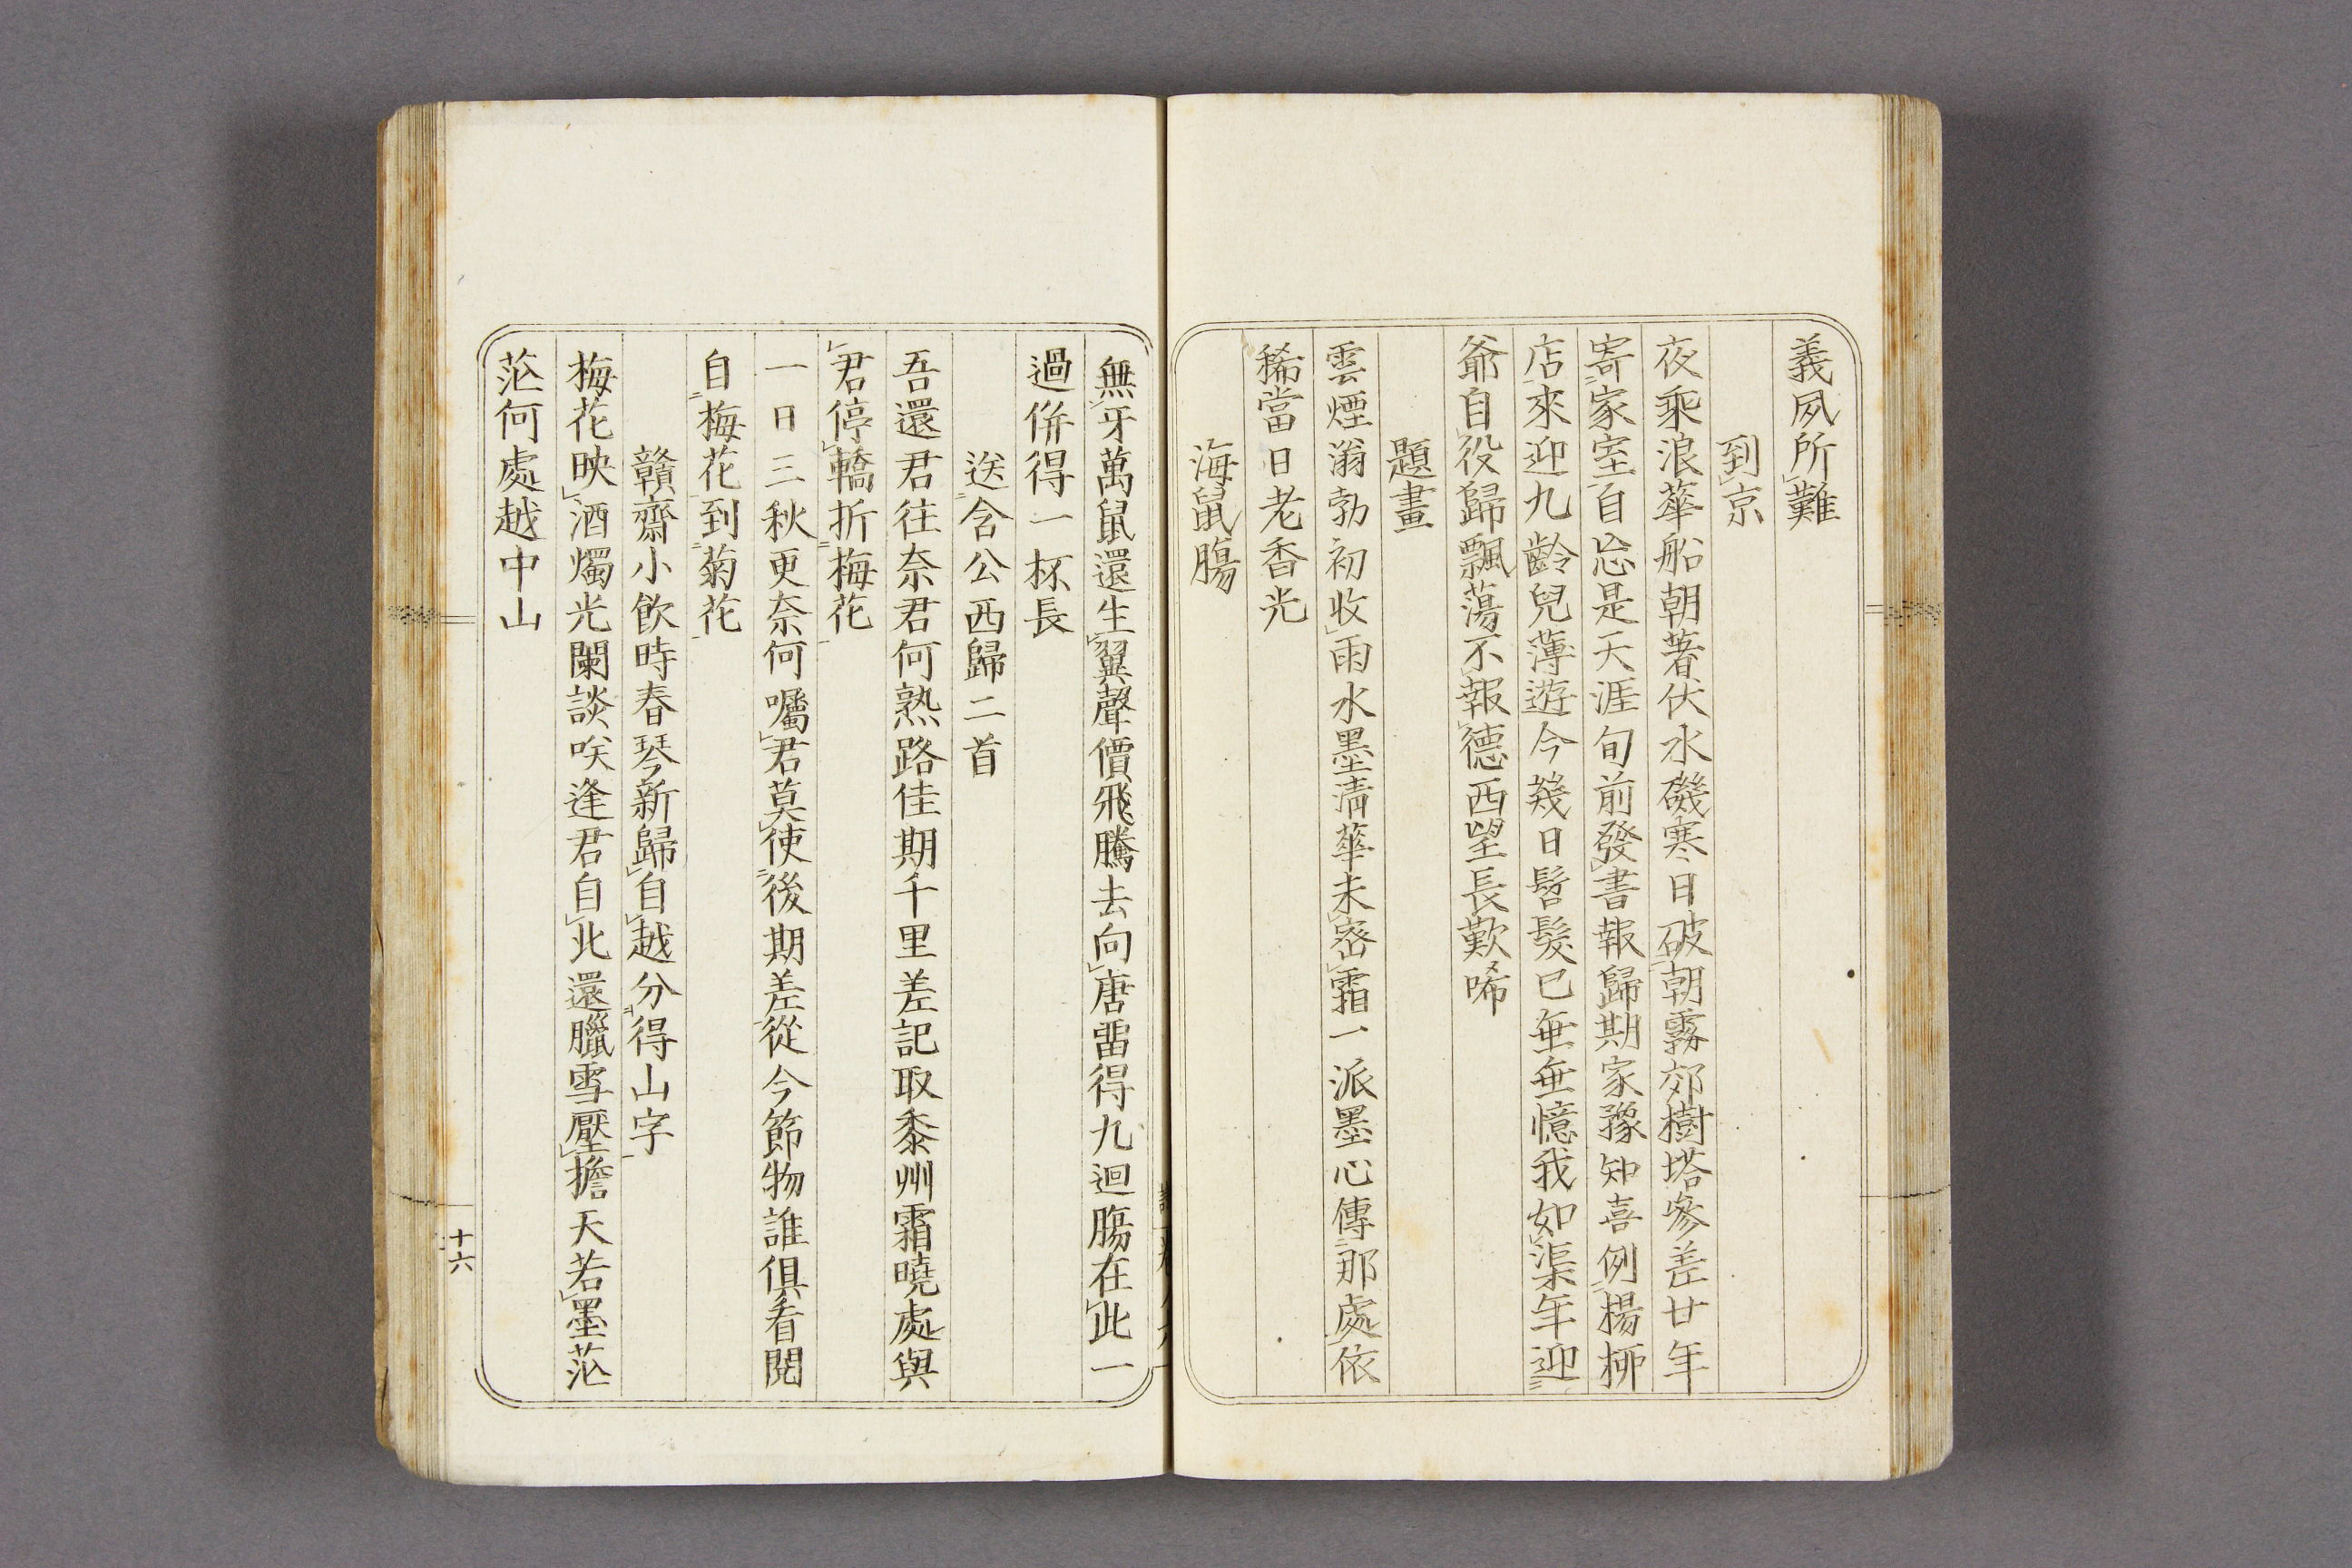 義夙所難
到京
夜乘浪華船朝著伏水磯寒日破朝霧郊樹塔參差廿年
寄家室自忘是天涯旬前發書報歸期家豫知喜例楊柳
店來迎九齡兒薄遊今幾日髫髮已垂垂憶我如渠年迎
爺自役歸飄蕩不報德西望長歎唏
題畫
雲煙滃勃初收雨水墨淸華未密霜一派墨心傳那處依
稀當日老香光
海鼠腸
無牙萬鼠還生翼聲價飛騰去向唐畱得九迴腸在此一
過倂得一杯長
送含公西歸二首
吾還君往奈君何熟路佳期千里差記取黍州霜曉處與
君停轎折梅花
一日三秋更奈何囑君莫使後期差從今節物誰俱看閱
自梅花到菊花
贛齋小飮時春琴新歸自越分得山字
梅花映酒燭光闌談咲逢君自北還臘雪壓擔天若墨茫
茫何處越中山
十六